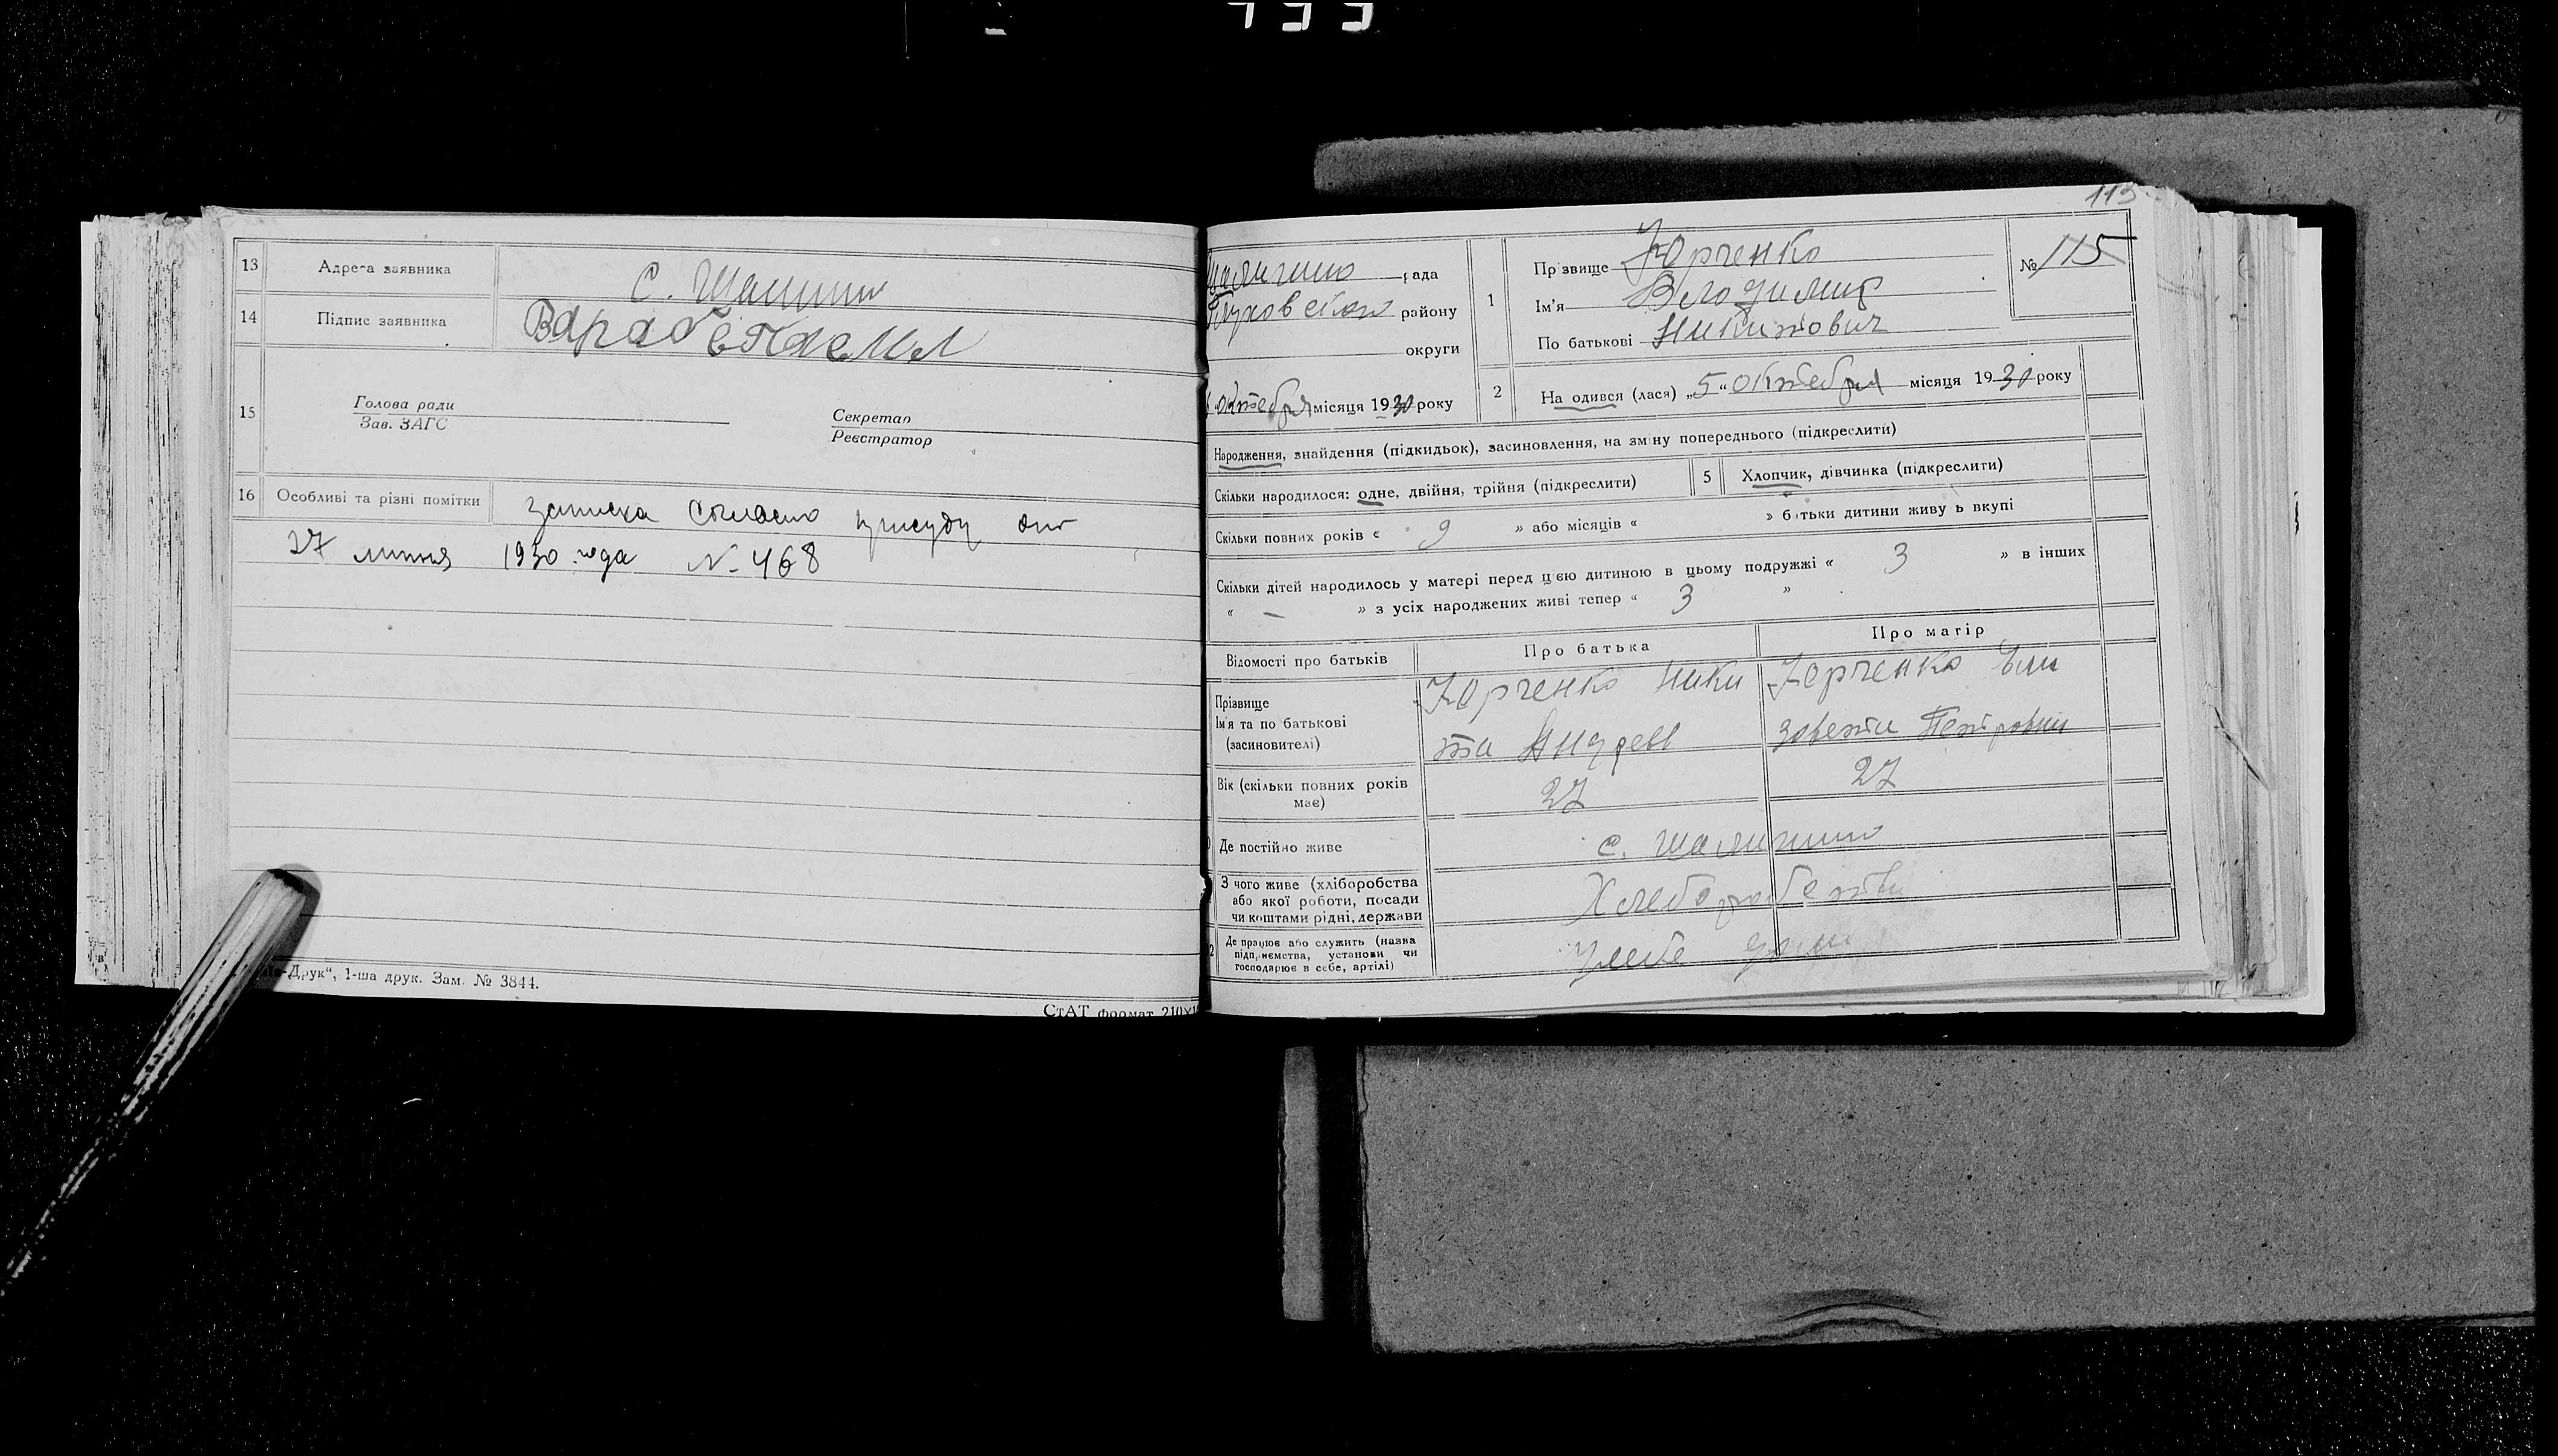 13 Адреса заявника с. Шалигино
14 Підпис заявника
15 Голова ради
Зав. ЗАГС
Секретар
Реєстратор
16 Особливі та різні помітки Записка согласно присуду от
27 липня 1930 года N-468
-Друк“, 1-ша друк. Зам. № 3844.
СтАТ формат 210×1
113
Шалигино рада
району
округи
октебря місяця 1930 року
1 Прізвище Юрченко
Ім'я Володимир
По батькові Никитович
№ 115
2 Народився (лася) „5“ октебря місяця 1930 року
Народження, знайдення (підкидьок), засиновлення, на зміну попереднього (підкреслити)
Скільки народилося: одне, двійня, трійня (підкреслити) 5 Хлопчик, дівчинка (підкреслити)
Скільки повних років « 9 » або місяців « » батьки дитини живуть вкупі
Скільки дітей народилось у матері перед цією дитиною в цьому подружжі « 3 » в інших
« — » з усіх народжених живі тепер « 3 »
Відомості про батьків Про батька Про матір
Прізвище
Ім'я та по батькові
(засиновителі)
Юрченко Ники
та Андреев
Юрченко Ели
зовета Петровна
Вік (скільки повних років
має) 27 27
Де постійно живе с. Шалигино
З чого живе (хліборобства
або якої роботи, посади
чи коштами рідні, держави
Хлеборобство
Де працює або служить (назва
підприємства, установи чи
господарює в себе, артілі)